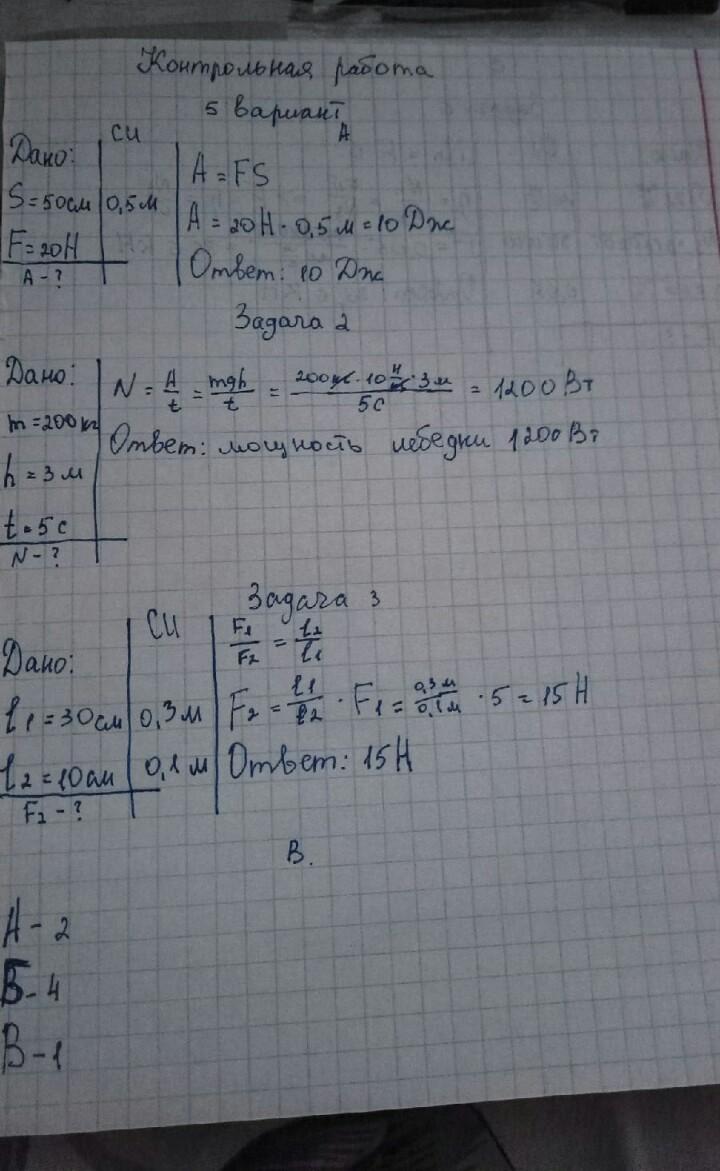 Контрольная работа
5 вариант
А
Дано:
СИ
S = 50см 0,5м
F = 20Н
А - ?
А = FS
А = 20Н · 0,5м = 10 Дж
Ответ: 10 Дж
Задача 2
Дано:
m = 200кг
h = 3м
t = 5с
N - ?
N = A/t = mgh/t = 200кг · 10 Н/кг · 3м / 5с = 1200Вт
Ответ: мощность лебедки 1200Вт
Задача 3
Дано:
СИ
l1 = 30см 0,3м
l2 = 10см 0,1м
F2 - ?
F1/F2 = l2/l1
F2 = l1/l2 · F1 = 0,3м/0,1м · 5 = 15Н
Ответ: 15Н
В.
А - 2
Б - 4
В - 1